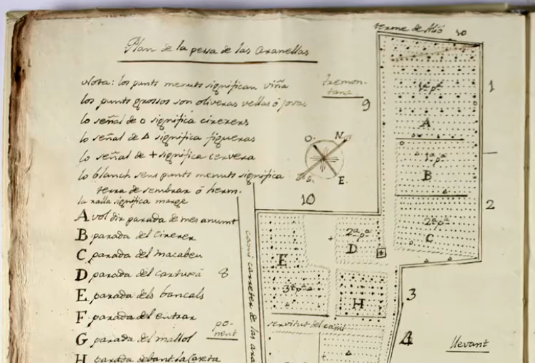 Plan de la pessa de las Aranellas
Nota: los punts menuts significan viña
los punts grossos son oliveras vellas ó jovas
lo señal de o significa cirerers
lo señal de Δ significa figueras
lo señal de + significa cervera
lo blanch sens punts menuts significa
terra de sembrar ó herm.
la ralla significa marge
A vol dir parada de mes amunt
B parada del cirerer
C parada del macabeu
D parada del
E parada dels bancals
F parada del entrar
G parada del mallol
H parada
8
terme de
10
tremon-
tana
9
1
A
B
2
C
O. N. E.
10
2ª pª
D
E
3ª pª
H
3
servitut del camí
po-
nent
4
llevant